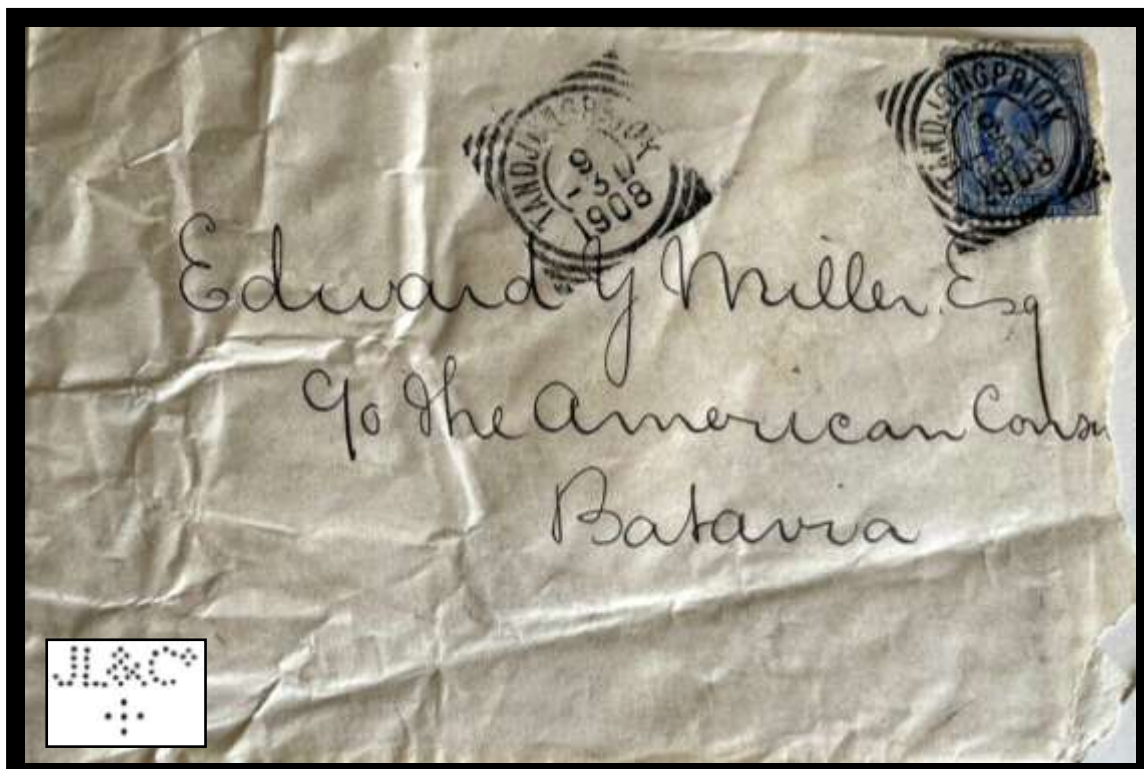 TANDJONGPRIOK
1908
TANDJONGPRIOK
1908
Edward Y Miller. Esq
c/o The American Consu
Batavia
JL&Co